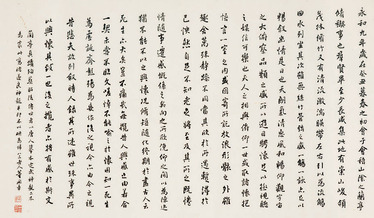 永和九年歲在癸丑暮春之初會于會稽山陰之蘭亭
脩禊事也羣賢畢至少長咸集此地有崇山峻領
茂林脩竹又有清流激湍暎帶左右引以為流觴
曲水列坐其次雖無絲竹管弦之盛一觴一詠亦足以
暢敘幽情是日也天朗氣清惠風和暢仰觀宇宙
之大俯察品類之盛所以遊目騁懷足以極視聽
之娛信可樂也夫人之相與俯仰一世或取諸懷抱
悟言一室之內或因寄所託放浪形骸之外雖
趣舍萬殊靜躁不同當其欣於所遇暫得於
己怏然自足不知老之將至及其所之既惓
情隨事遷感慨係之矣向之所欣俛仰之間以為陳迹
猶不能不以之興懷況脩短隨化終期於盡古人云
死生亦大矣豈不痛哉每攬昔人興感之由若合
一契未嘗不臨文嗟悼不能喻之於懷固知一死生
為虛誕齊彭殤為妄作後之視今亦由今之視
昔悲夫故列敘時人錄其所述雖世殊事異所
以興懷其致一也後之攬者亦將有感於斯文